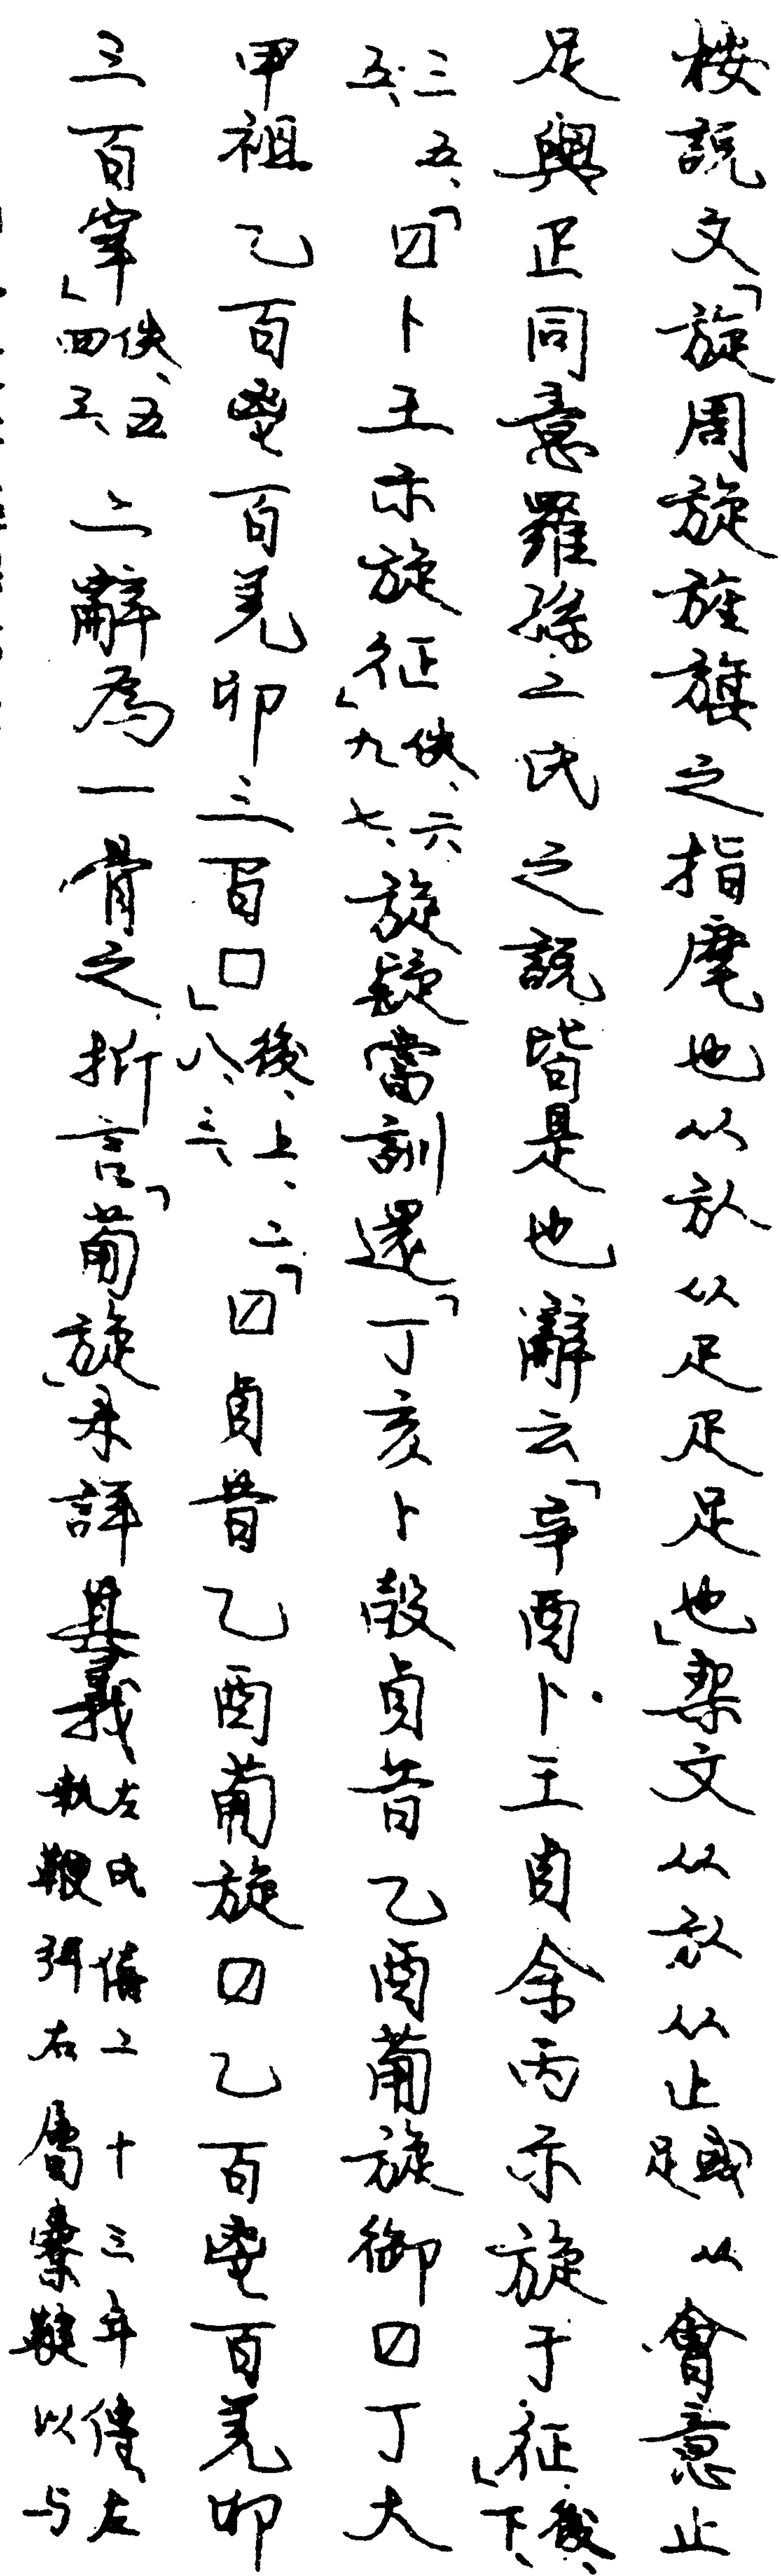 按說文「旋周旋旌旗之指麾也从㫃从疋疋足也」栔文从㫃从止或从足會意止
足與疋同意羅孫二氏之說皆是也辭云「辛酉卜王貞余丙示旋于征」後、下、
三五、五、「囗卜王示旋征」佚、六九七、旋疑當訓還「丁亥卜㱿貞昔乙酉葡旋御囗丁大
甲祖乙百鬯百羌卯三百囗」後、上、二八、三、「囗貞昔乙酉葡旋囗乙百鬯百羌卯
三百䍧」佚、五四三、二辭為一骨之折言「葡旋」未詳其義左氏僖二十三年傳左執鞭弭右屬櫜鞬以与